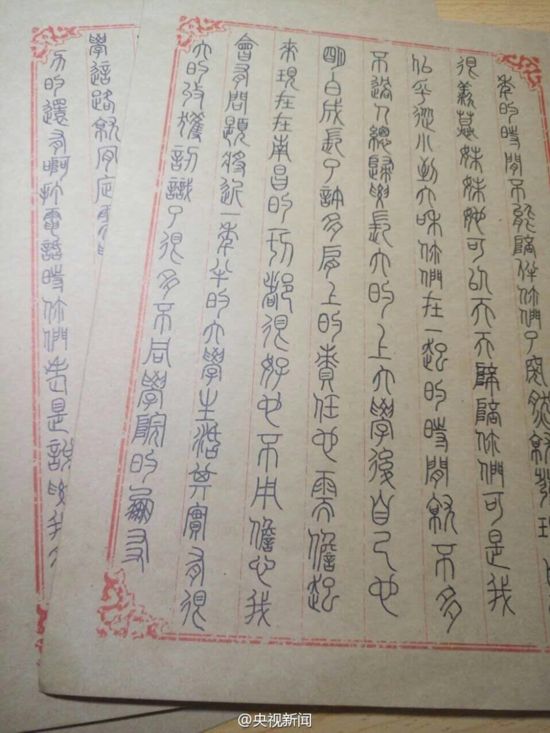 年的時間不能陪伴你們了突然就發現
很羨慕妹妹她可以天天陪你們可是我
似乎從小到大和你們在一起的時間就不多
不過人總歸要長大的上大學後自己也
明白成長了許多肩上的責任也要擔起
來現在在南昌的一切都很好也不用擔心我
會有問題將近一年半的大學生活其實有很
大的收獲認識了很多不同學院的朋友
學這路就
方的還有啊打電話時你們老是說要我
@央视新闻